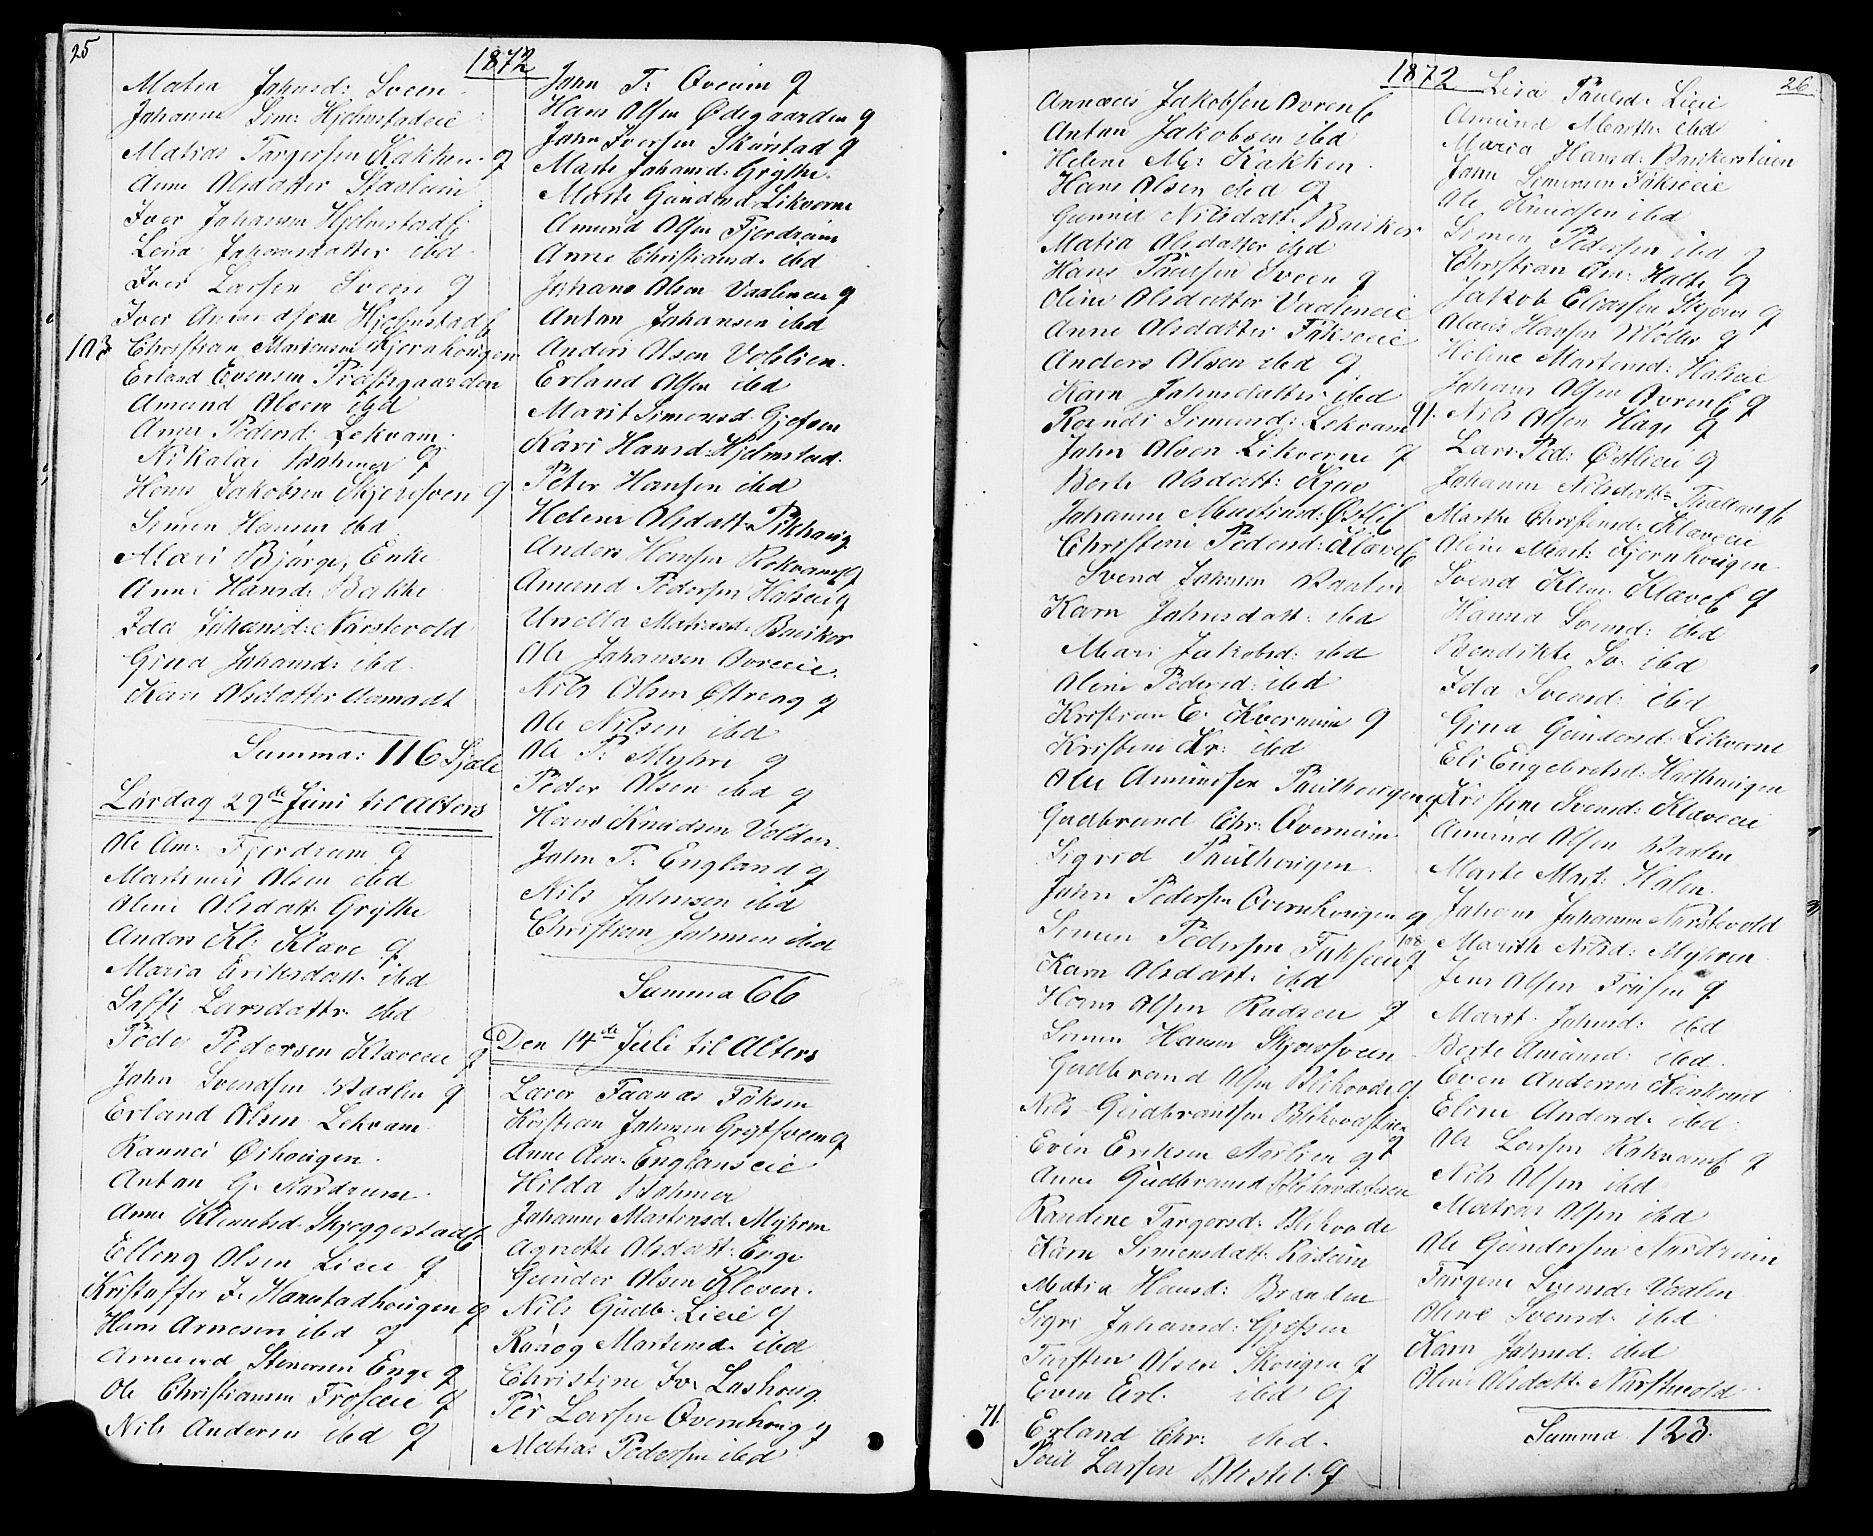 25
1872
Matia Johnsd: Sveen
Johanne Sim: Hjelmstadeie
Matias Torgersen Kakken. q
Anne Olsdatter Staaleiin
Iver Johansen Hjelmstad
Lena Johansdatter ibd
Iver Larsen Sveen q
Iver Amundsen Hjelmstad
103 Christian Martensen Kjernhougen
Erland Evensen Præstgaarden
Amund Olsen ibd
Anne Pedersd: Lekvam
Nikolai q
Hans Jakobsen Skjersven q
Simen Hansen ibd
Mari Bjørge, Enke
Anne Hansd: Bakke
Ida Johansd: Narstevold
Gina Johansd: ibd.
Kari Olsdatter Aamodt
Summa: 116 Sjæle
Lørdag 29de Juni til Alters
Ole Am: Fjerdrum q
Martinus Olsen ibd
Oline Olsdatt: Grythe
Anders Kl: Klave q
Maria Eriksdatt: ibd
Larsdattr. ibd
Peder Pedersen Klaveeie q
John Svendsen Vaalen q
Erland Olsen Lekvam
Rannei Øihougen.
Anton G. Nordrum.
Anne Klemetsd. Skjeggestad
Elling Olsen Lieie q
Kristoffer J. Honestadhougen q
Hans Arnesen ibd q
Amund Stenersen Enge q
Ole Christiansen Troseie q
Nils Andersen ibd q
John T: Overin q
Hans Olsen Ødegaarden q
John Iversen Skurstad q
Marte Johansd. Grythe.
Marte Gundersd Likverne
Amund Olsen Fjerdrum
Anne Christiansd. ibd
Johans Olsen Vaaleneie q
Anton Johansen ibd
Anders Olsen Vohlien.
Erland Olsen ibd
Marit Simensd. Gjefsen
Kari Hansd. Hjelmstad.
Peter Hansen ibd
Helene Olsdatt. Pikhaug
Anders Hansen Rokvam q
Amund Pedersen Holseie q
Unella Matiasd. Bøiker
Ole Johansen Ovreeie.
Nils Olsen Østreng q
Ole Nilsen ibd
Ole P: Myhre q
Peder Olsen ibd q
Hans Knudsen Volden.
John T: England q
Nils Johnsen ibd
Christian Johnsen ibd
Summa 66
Den 14de Juli til Alters
Lærer Faanas Foksen
Kristian Johnsen Grytsveen q
Anne Am. Englanseie
Hilda
Johanne Martinsd. Myhren
Agnethe Olsdatt: Enge
Gunder Olsen Kleven.
Nils Gudb. Lieie q
Rønog Martensd. ibd
Christine Iv. Lashoug.
Per Larsen Øvernhoug q
Matias Pedersen ibd
1872
26
Annæus Jakobsen Ovren
Anton Jakobsen ibd
Helene M: Kakken
Hans Olsen ibd q
Gunnil Nilsdatt. Bøiker
Matia Olsdatter ibd
Hans Paulsen Sveen q
Oline Olsdatter Vaaleneie
Anne Olsdatter Fokseeie
Anders Olsen ibd q
Karn Johnsdatter ibd
Randi Simensd: Lekvam
John Olsen Likverne q
Berte Olsdatt: Kjos
Johanne Martinsd: Østli
Christine Pedersd: Klave
Svend Johnsen Vaalen
Karn Johnsdatt. ibd
Mari Jakobsd: ibd
Oline Pedersd: ibd
Kristian E. Kvernum q
Kristine Kr: ibd
Ole Amundsen Paulhougen q
Gudbrand Chr: Overnum
Sigrid Paulhougen
John Pedersen Overnhougen q
Simen Pedersen Fokseeie q
Karn Olsdatt. ibd
Hans Olsen Rudseie q
Simen Hansen Skjersveen
Gudbrand Olsen Blihovde q.
Nils Gudbrandsen Blihovdstuen q
Even Eriksen Narlien q
Anne Gudbransd Blihovdstuen
Randine Torgersd: Blihovde
Karn Simensdatt. Rosteim
Matia Hansd: Branden
Sigri Johansd: Gjefsen
Torsten Olsen Skougen q
Even Erl. ibd q
71. Erland Chr: ibd.
Poul Larsen Blistel. q
Lisa Paulsd. Lieie
Amund Marth. ibd
Maria Hansd: Bøikerstuen
John Simensen Fokseeie
Ole Knudsen ibd
Simen Pedersen ibd q
Christian An: Halte q
Jakob Eliassen Skjerve q
Olaus Hansen Moller q
Helene Martensd: Holseie
Johans Olsen Ovren q
91. Nils Olsen Hage q
Lars Ped: Østlieie q
Johanne Nilsdatt:
Marthe Christensd: Klaveeie
Oline Mart: Kjernhougen
Svend Klem: Klave q
Hanna Svensd: ibd
Bendikte Sv. ibd
Ida Svensd: ibd
Gina Gundersd. Likverne
Eli Engebretsd: Halthougen
Kristine Svensd: Klaveeie
Amund Olsen Vaalen
Marte Mart: Holen.
Johans Johansen Narstevold
108 Marith Nilsd: Myhren
Jens Olsen Friisen q.
Marit Johnsd: ibd
Berte Amunsd: ibd.
Even Andersen Kankrud
Eline Andersd. ibd.
Ole Larsen Rokvam q
Nils Olsen ibd
Matias Olsen ibd
Ole Gundersen Nordrum
Torgine Svensd: Vaalen
Oline Svensd. ibd
Karn Johnsd: ibd
Oline Olsdatt. Narstevold
Summa 123.